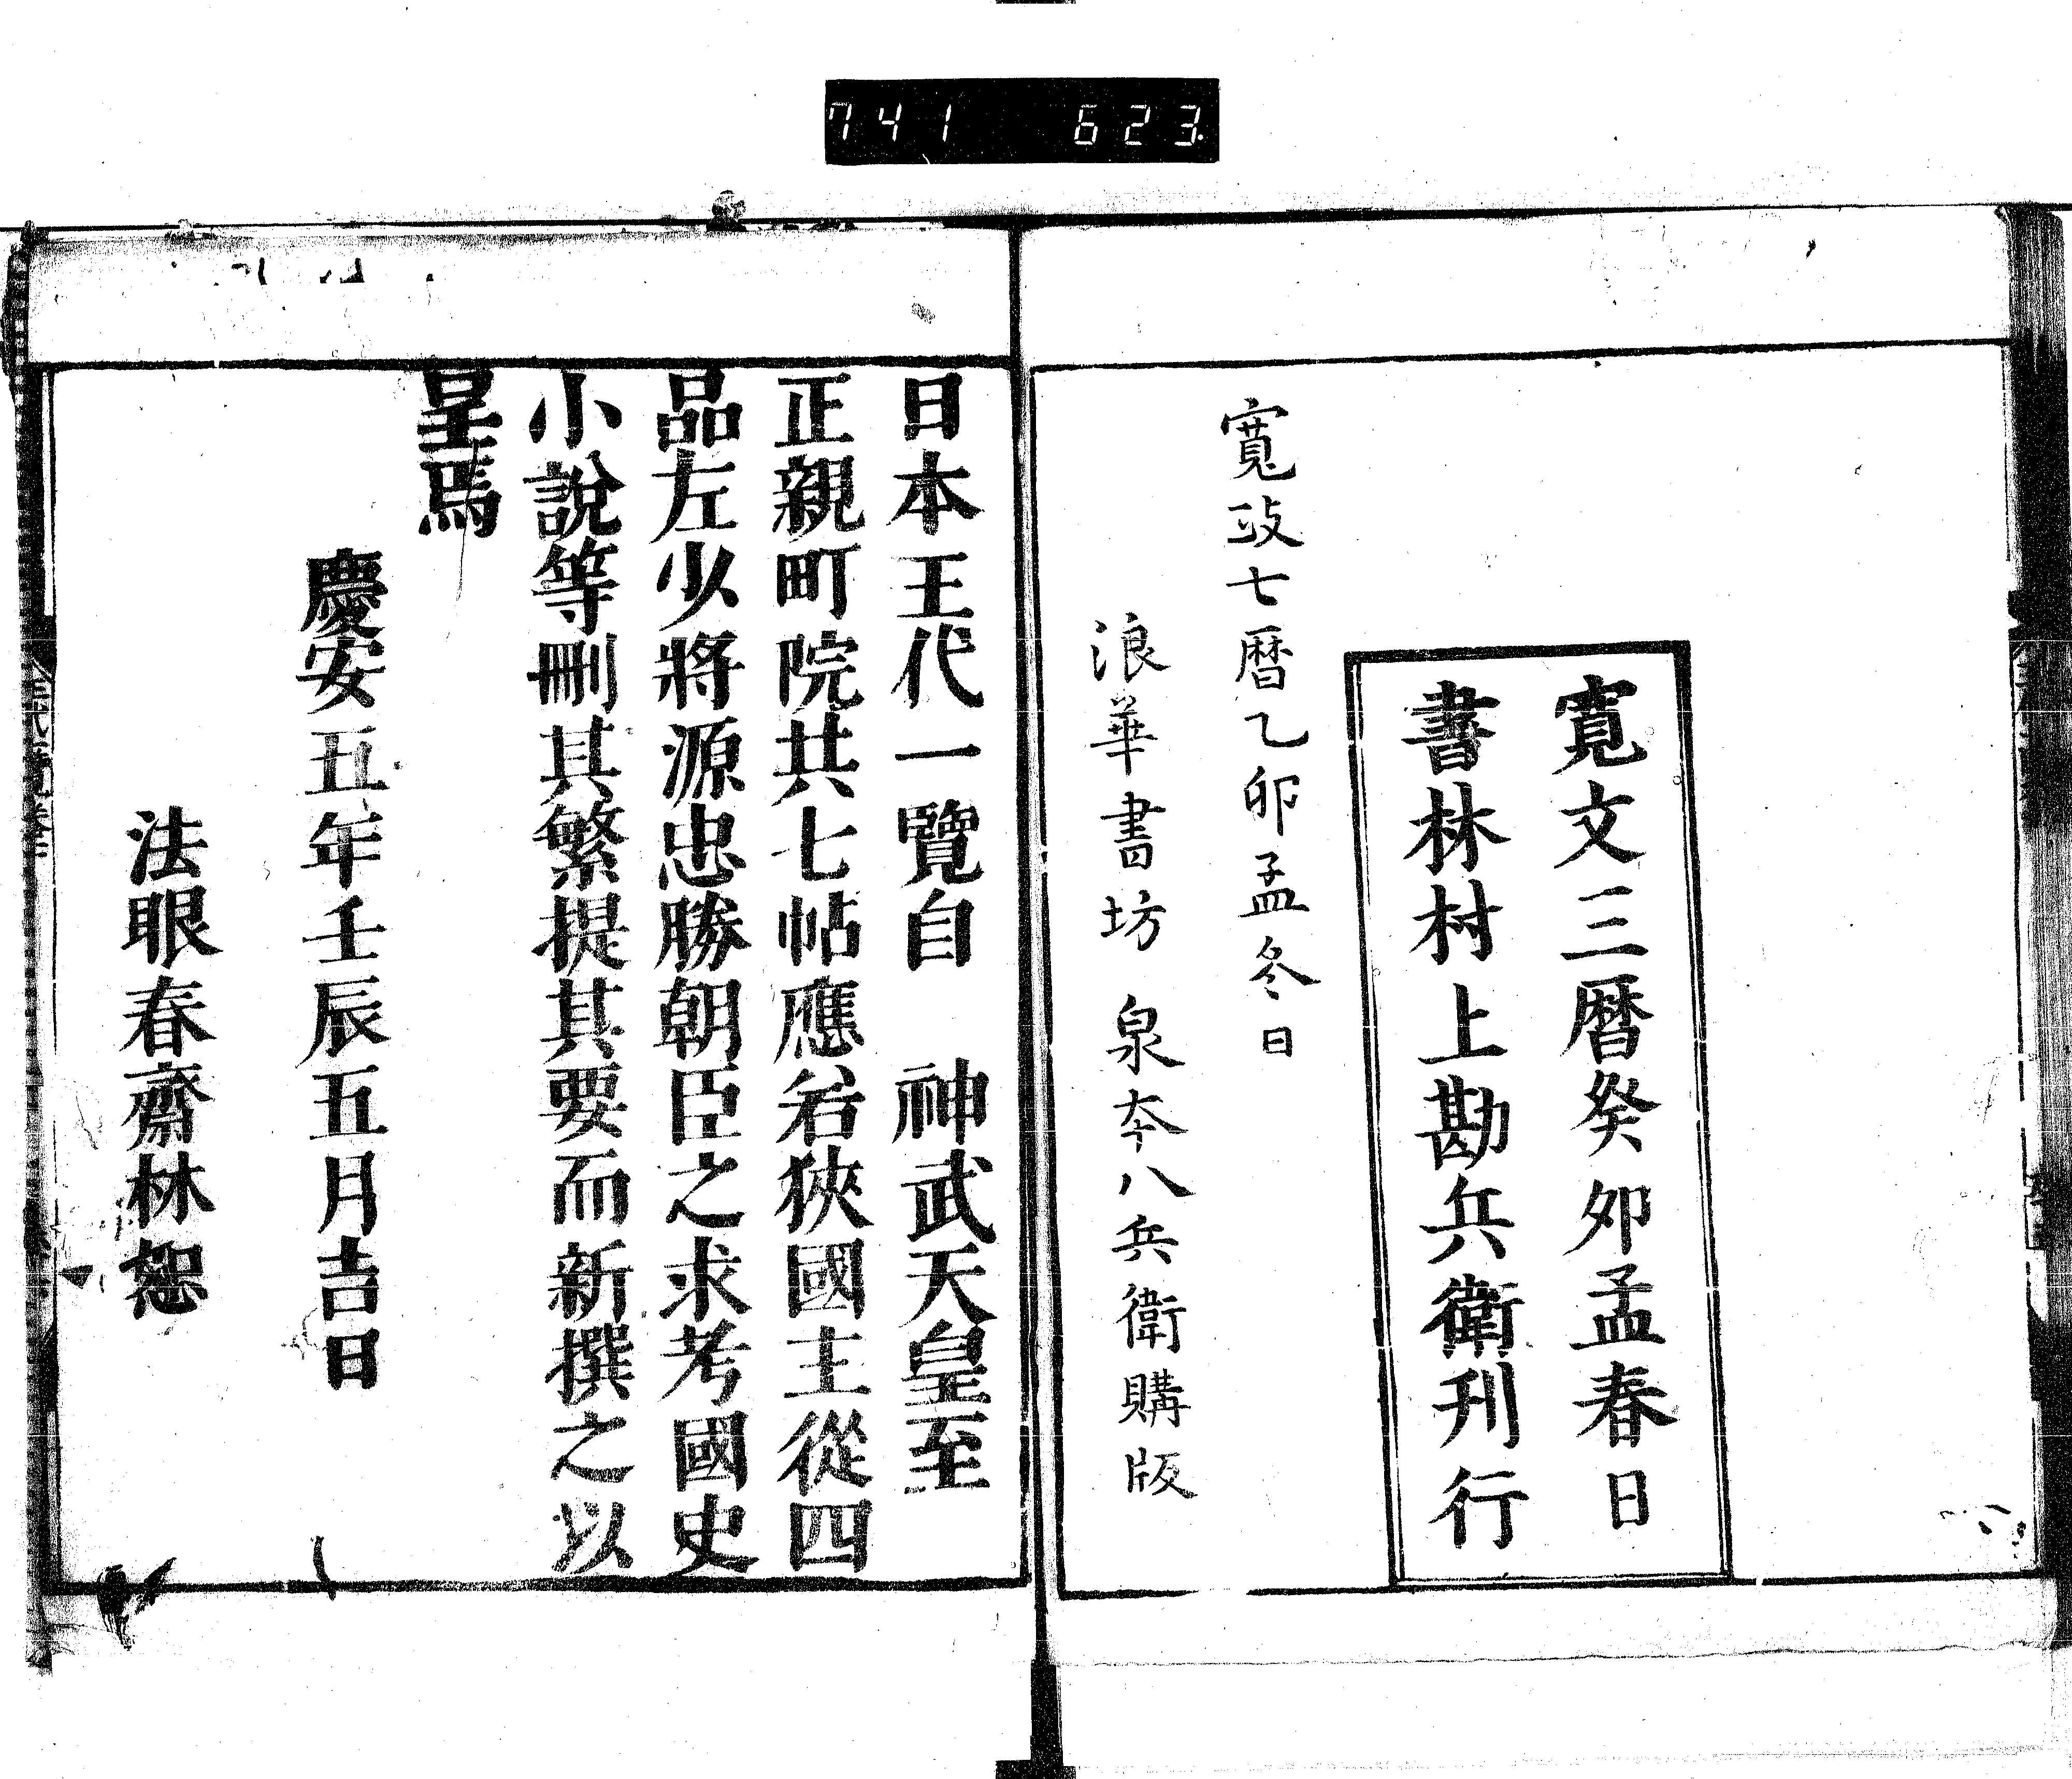 741 623
寛文三暦癸卯孟春日
書林村上勘兵衛刊行
寛政七暦乙卯孟冬日
浪華書坊 泉本八兵衛購版
日本王代一覽自 神武天皇至
正親町院共七帖應若狹國主從四
品左少將源忠勝朝臣之求考國史
小說等刪其繁提其要而新撰之以
呈焉
慶安五年壬辰五月吉日
法眼春齋林恕